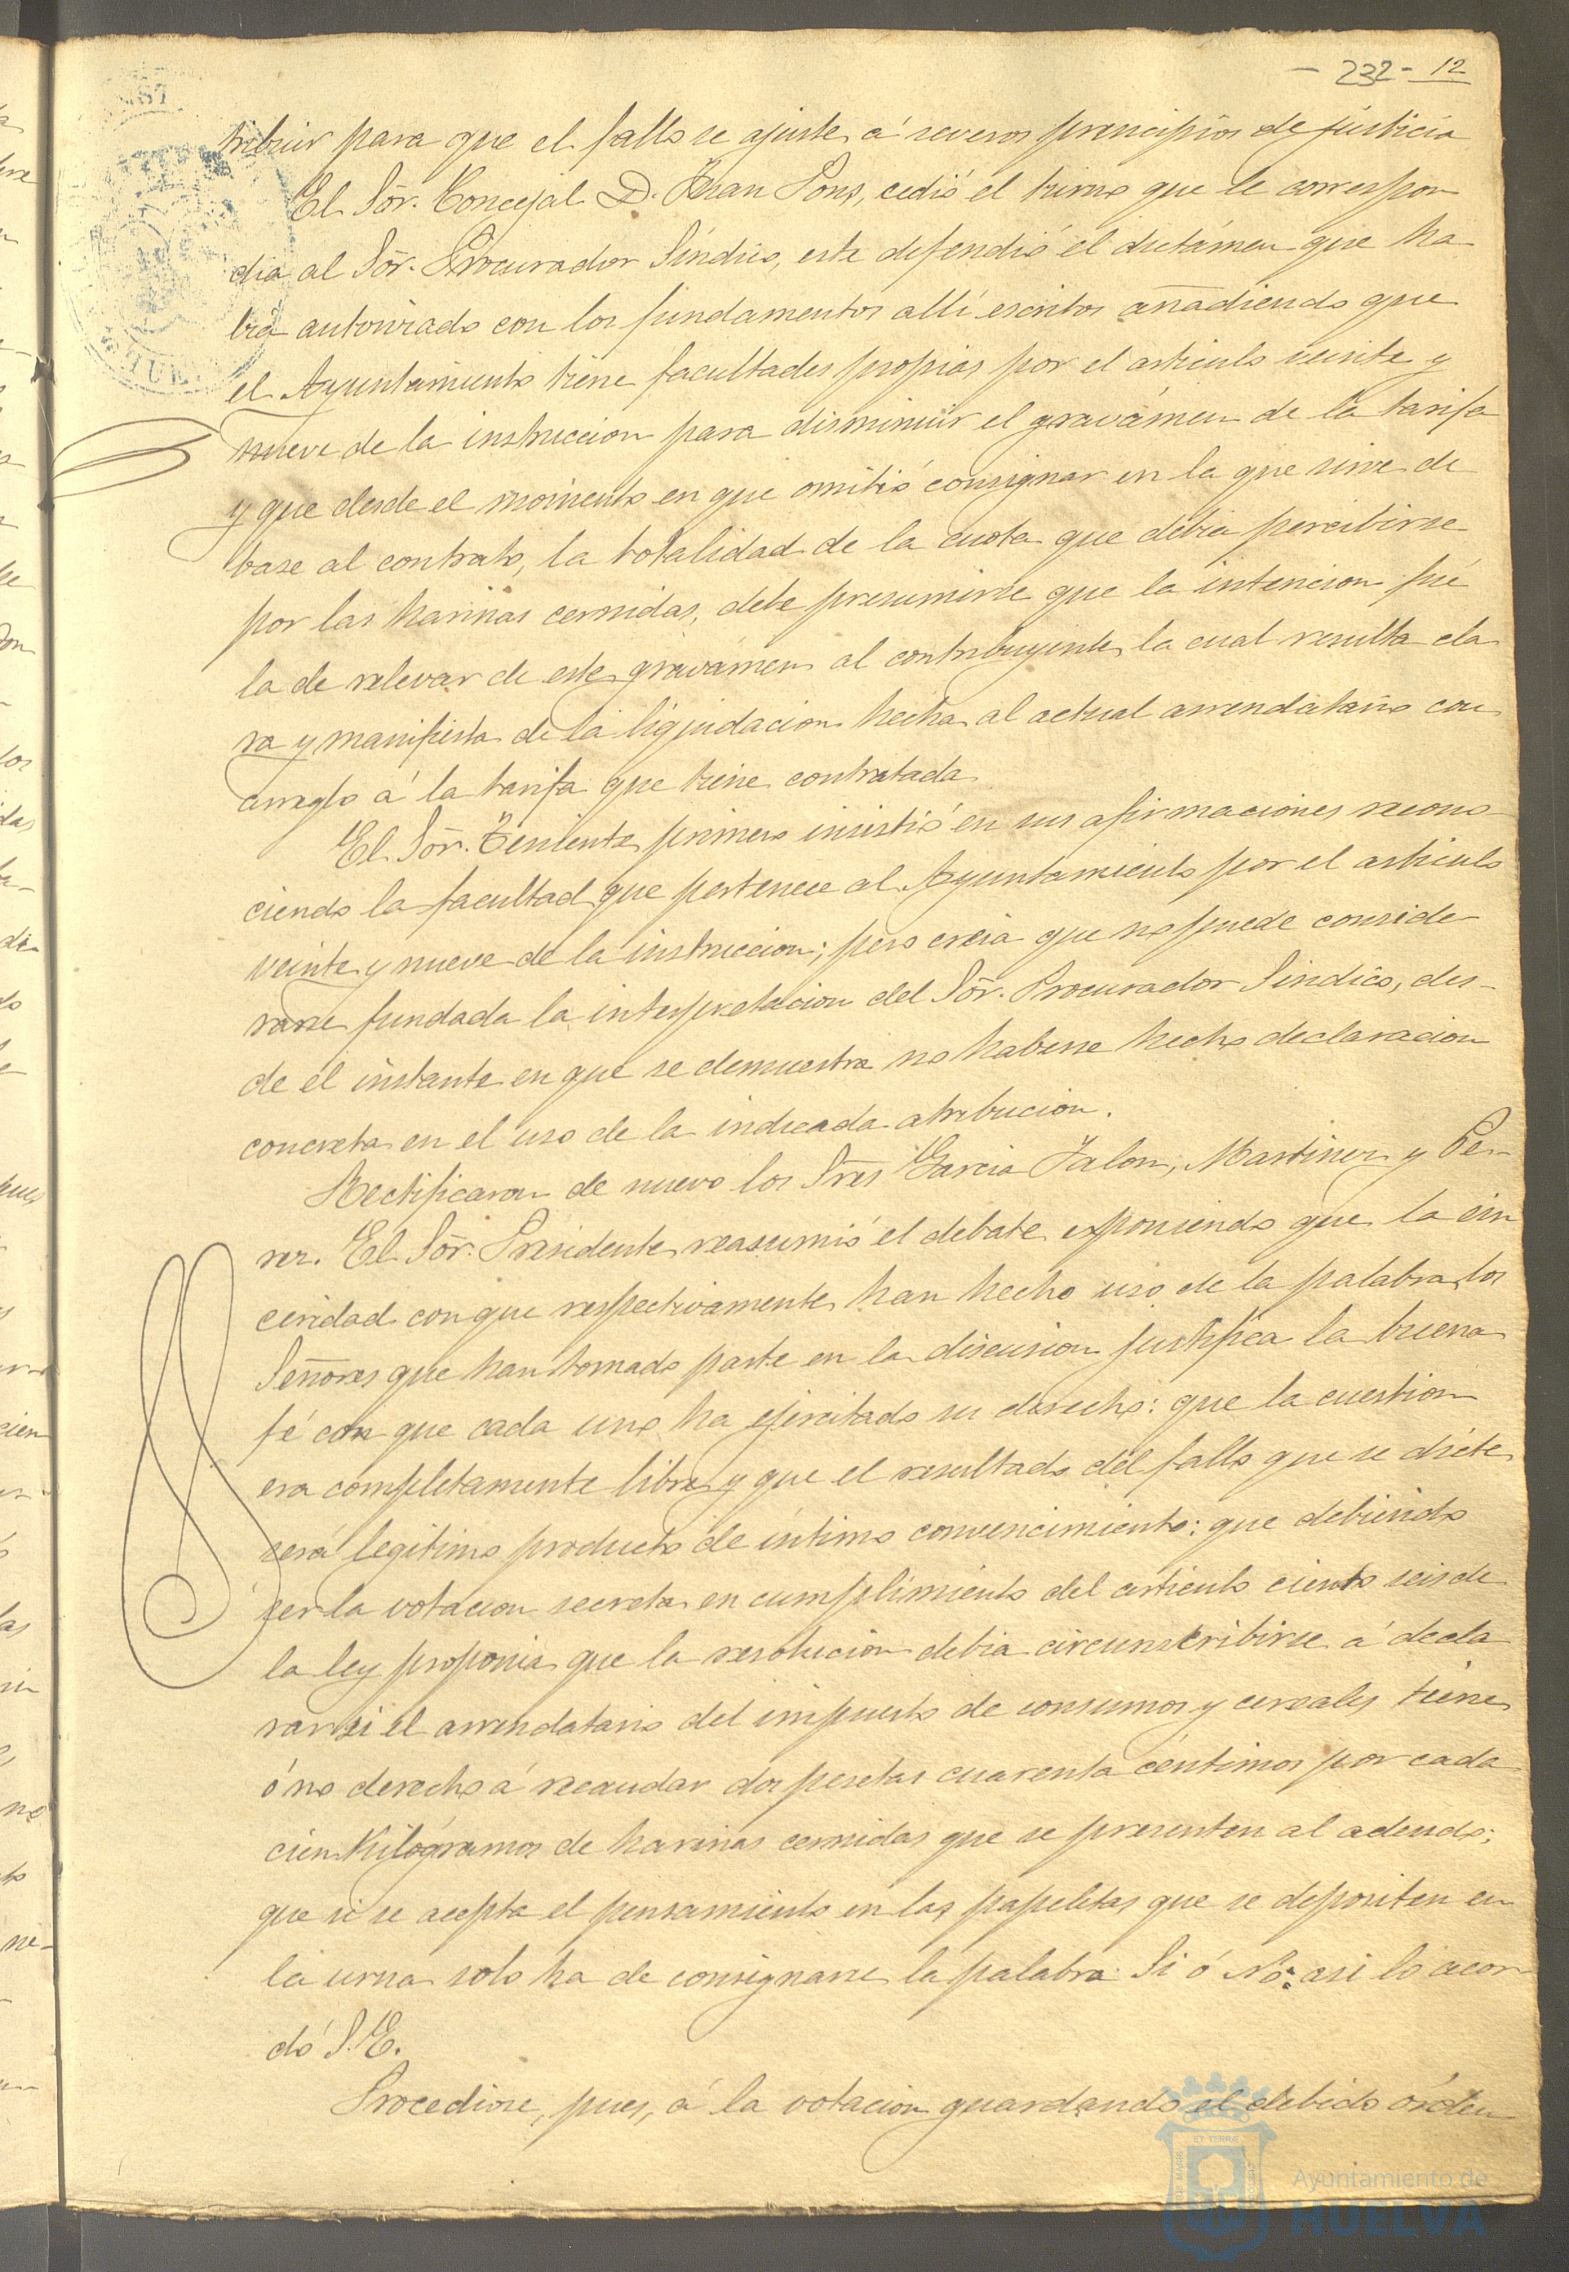 - 232 - 12
tribuir para que el fallo se ajuste á severos principios de justicia
El Sõr. Concejal D. Juan Pons, cedió el turno que le correspon
dia al Sõr. Procurador Síndico, este defendió el dictámen que ha
bia autorizado con los fundamentos allí escritos añadiendo que
el Ayuntamiento tiene facultades propias por el articulo veinte y
nueve de la instruccion para disminuir el gravámen de la tarifa
y que desde el momento en que omitió consignar en la que sirve de
base al contrato, la totalidad de la cuota que debia percibirse
por las harinas cernidas, debe presumirse que la intencion fué
la de relevar de este gravámen al contribuyente, la cual resulta cla
ra y manifiesta de la liquidacion hecha al actual arrendatario con
arreglo á la tarifa que tiene contratada
El Sõr. Teniente primero insistió en sus afirmaciones recono-
ciendo la facultad que pertenece al Ayuntamiento por el articulo
veinte y nueve de la instruccion; pero creia que no puede conside-
rarse fundada la interpretacion del Sõr. Procurador Síndico, des-
de el instante en que se demuestra no haberse hecho declaracion
concreta en el uso de la indicada atribucion.
Rectificaron de nuevo los Sres Garcia Jalon, Martinez y Pe-
rez. El Sõr. Presidente reasumió el debate exponiendo que la sin
ceridad con que respectivamente han hecho uso de la palabra los
Señores que han tomado parte en la discusion justifica la buena
fé con que cada uno ha ejercitado su derecho: que la cuestion
era completamente libre y que el resultado del fallo que se dicte
será legítimo producto de íntimo convencimiento: que debiendo
ser la votacion secreta en cumplimiento del articulo ciento seis de
la ley proponia que la resolucion debia circunscribirse á decla
rar si el arrendatario del impuesto de consumos y cereales tiene
ó no derecho á recaudar dos pesetas cuarenta céntimos por cada
cien Kilógramos de harinas cernidas que se presenten al adeudo;
que si se acepta el pensamiento en las papeletas que se depositen en
la urna solo ha de consignarse la palabra Si ó No: asi lo acor
dó S.E.
Procediose, pues, á la votacion guardando el debido órden
Ayuntamiento de
HUELVA